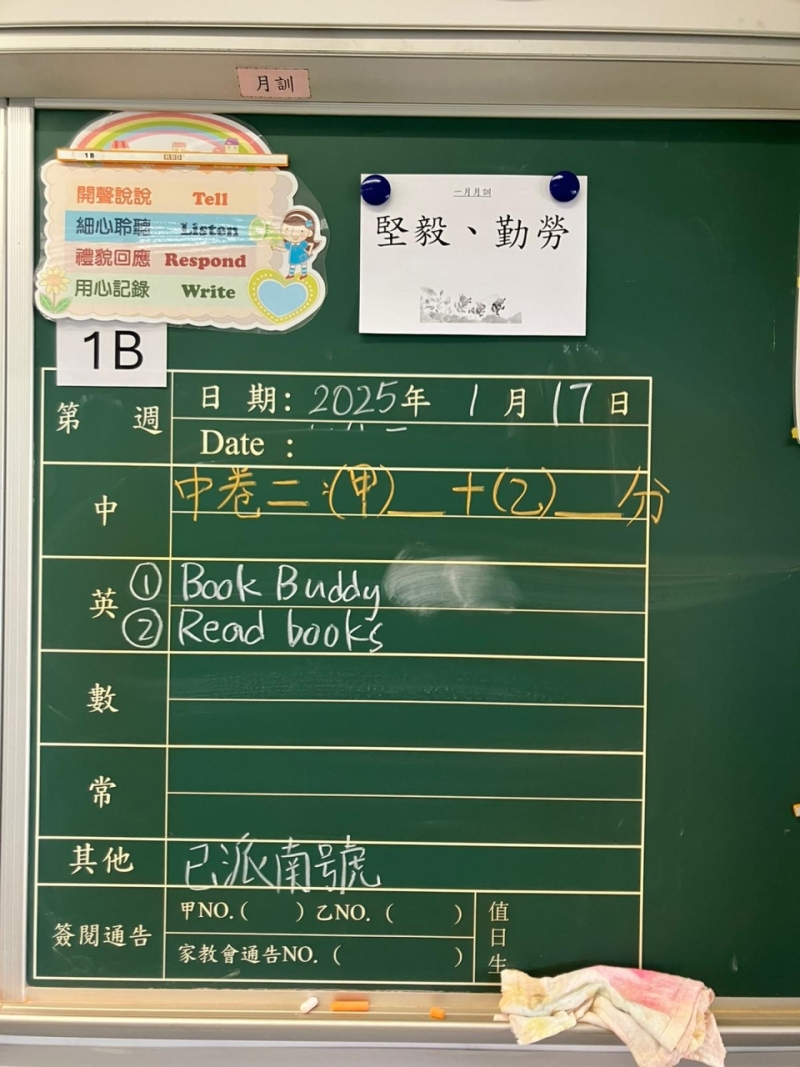 月訓
1B
開聲說說 Tell
細心聆聽 Listen
禮貌回應 Respond
用心記錄 Write
一月月訓
堅毅、勤勞
1B
第 週
日 期: 2025年 1 月 17 日
Date :
中
中卷二:(甲)__+(乙)__分
英
① Book Buddy
② Read books
數
常
其他
已派南號
簽閱通告
甲NO.( ) 乙NO. ( )
家教會通告NO. ( )
值日生